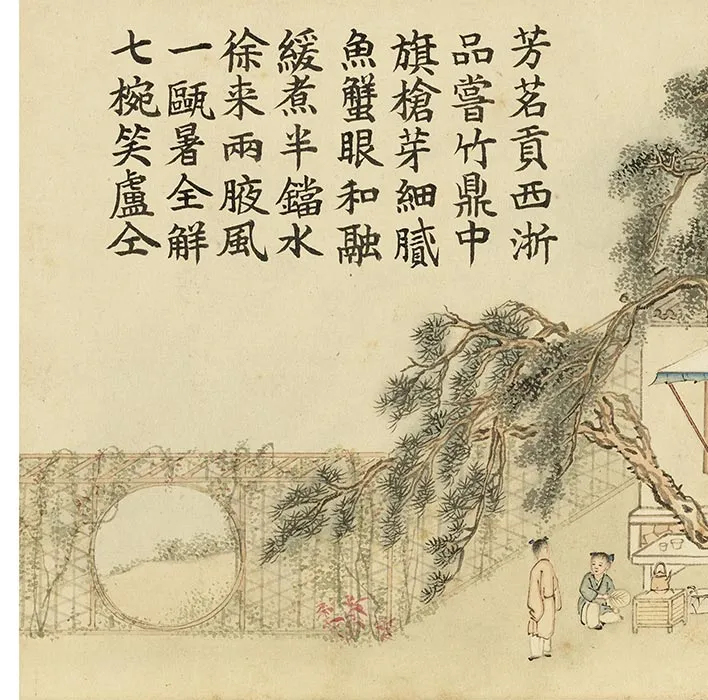 芳茗貢西浙
品嘗竹鼎中
旗槍芽細膩
魚蟹眼和融
緩煮半鐺水
徐来兩腋風
一甌暑全解
七椀笑盧仝